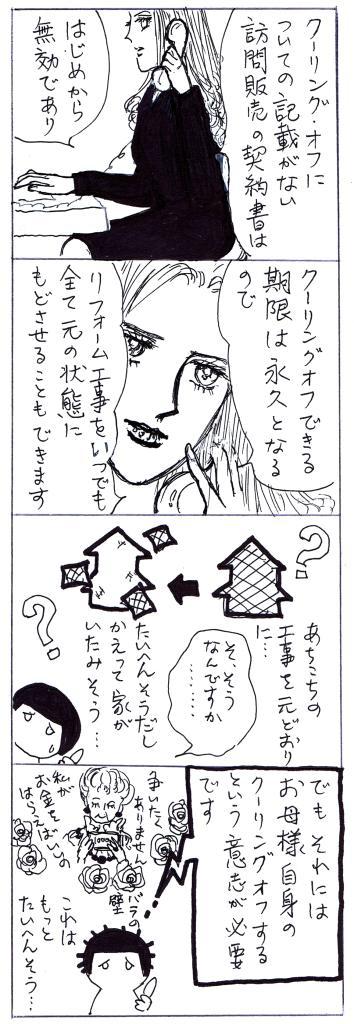 クーリング・オフに
ついての記載がない
訪問販売の契約書は
はじめから
無効であり
クーリングオフできる
期限は永久となる
ので
リフォーム工事をいつでも
全て元の状態に
もどさせることもできます
?
あちこちの
工事を元どおり
に…
そ、そう
なんですか
………
たいへんそうだし
かえって家が
いたみそう…
?
でも それには
お母様自身の
クーリングオフする
という意志が必要
です
争いたく
ありません
バラの
壁
私が
お金をはらえば
いいの
これは
もっと
たいへんそう…